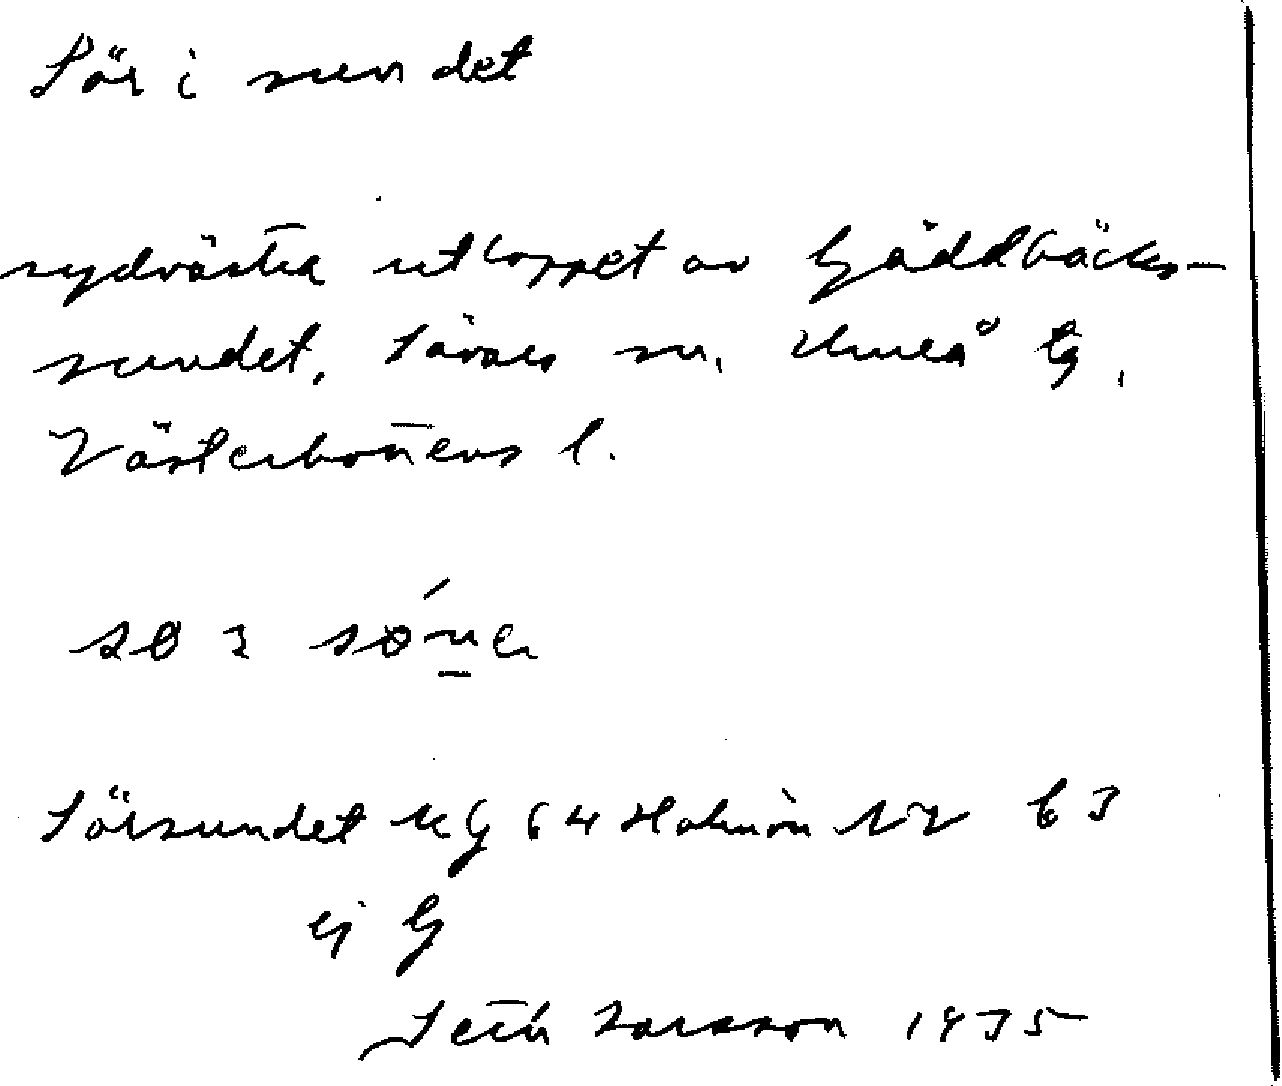 Sör i sundet
sydvästra utloppet av Gäddbäcks-
sundet, Sävars sn, Umeå tg,
Västerbottens l.
Sörsundet KG 64 Holmön NV 63
ej G
Seth Larsson 1975